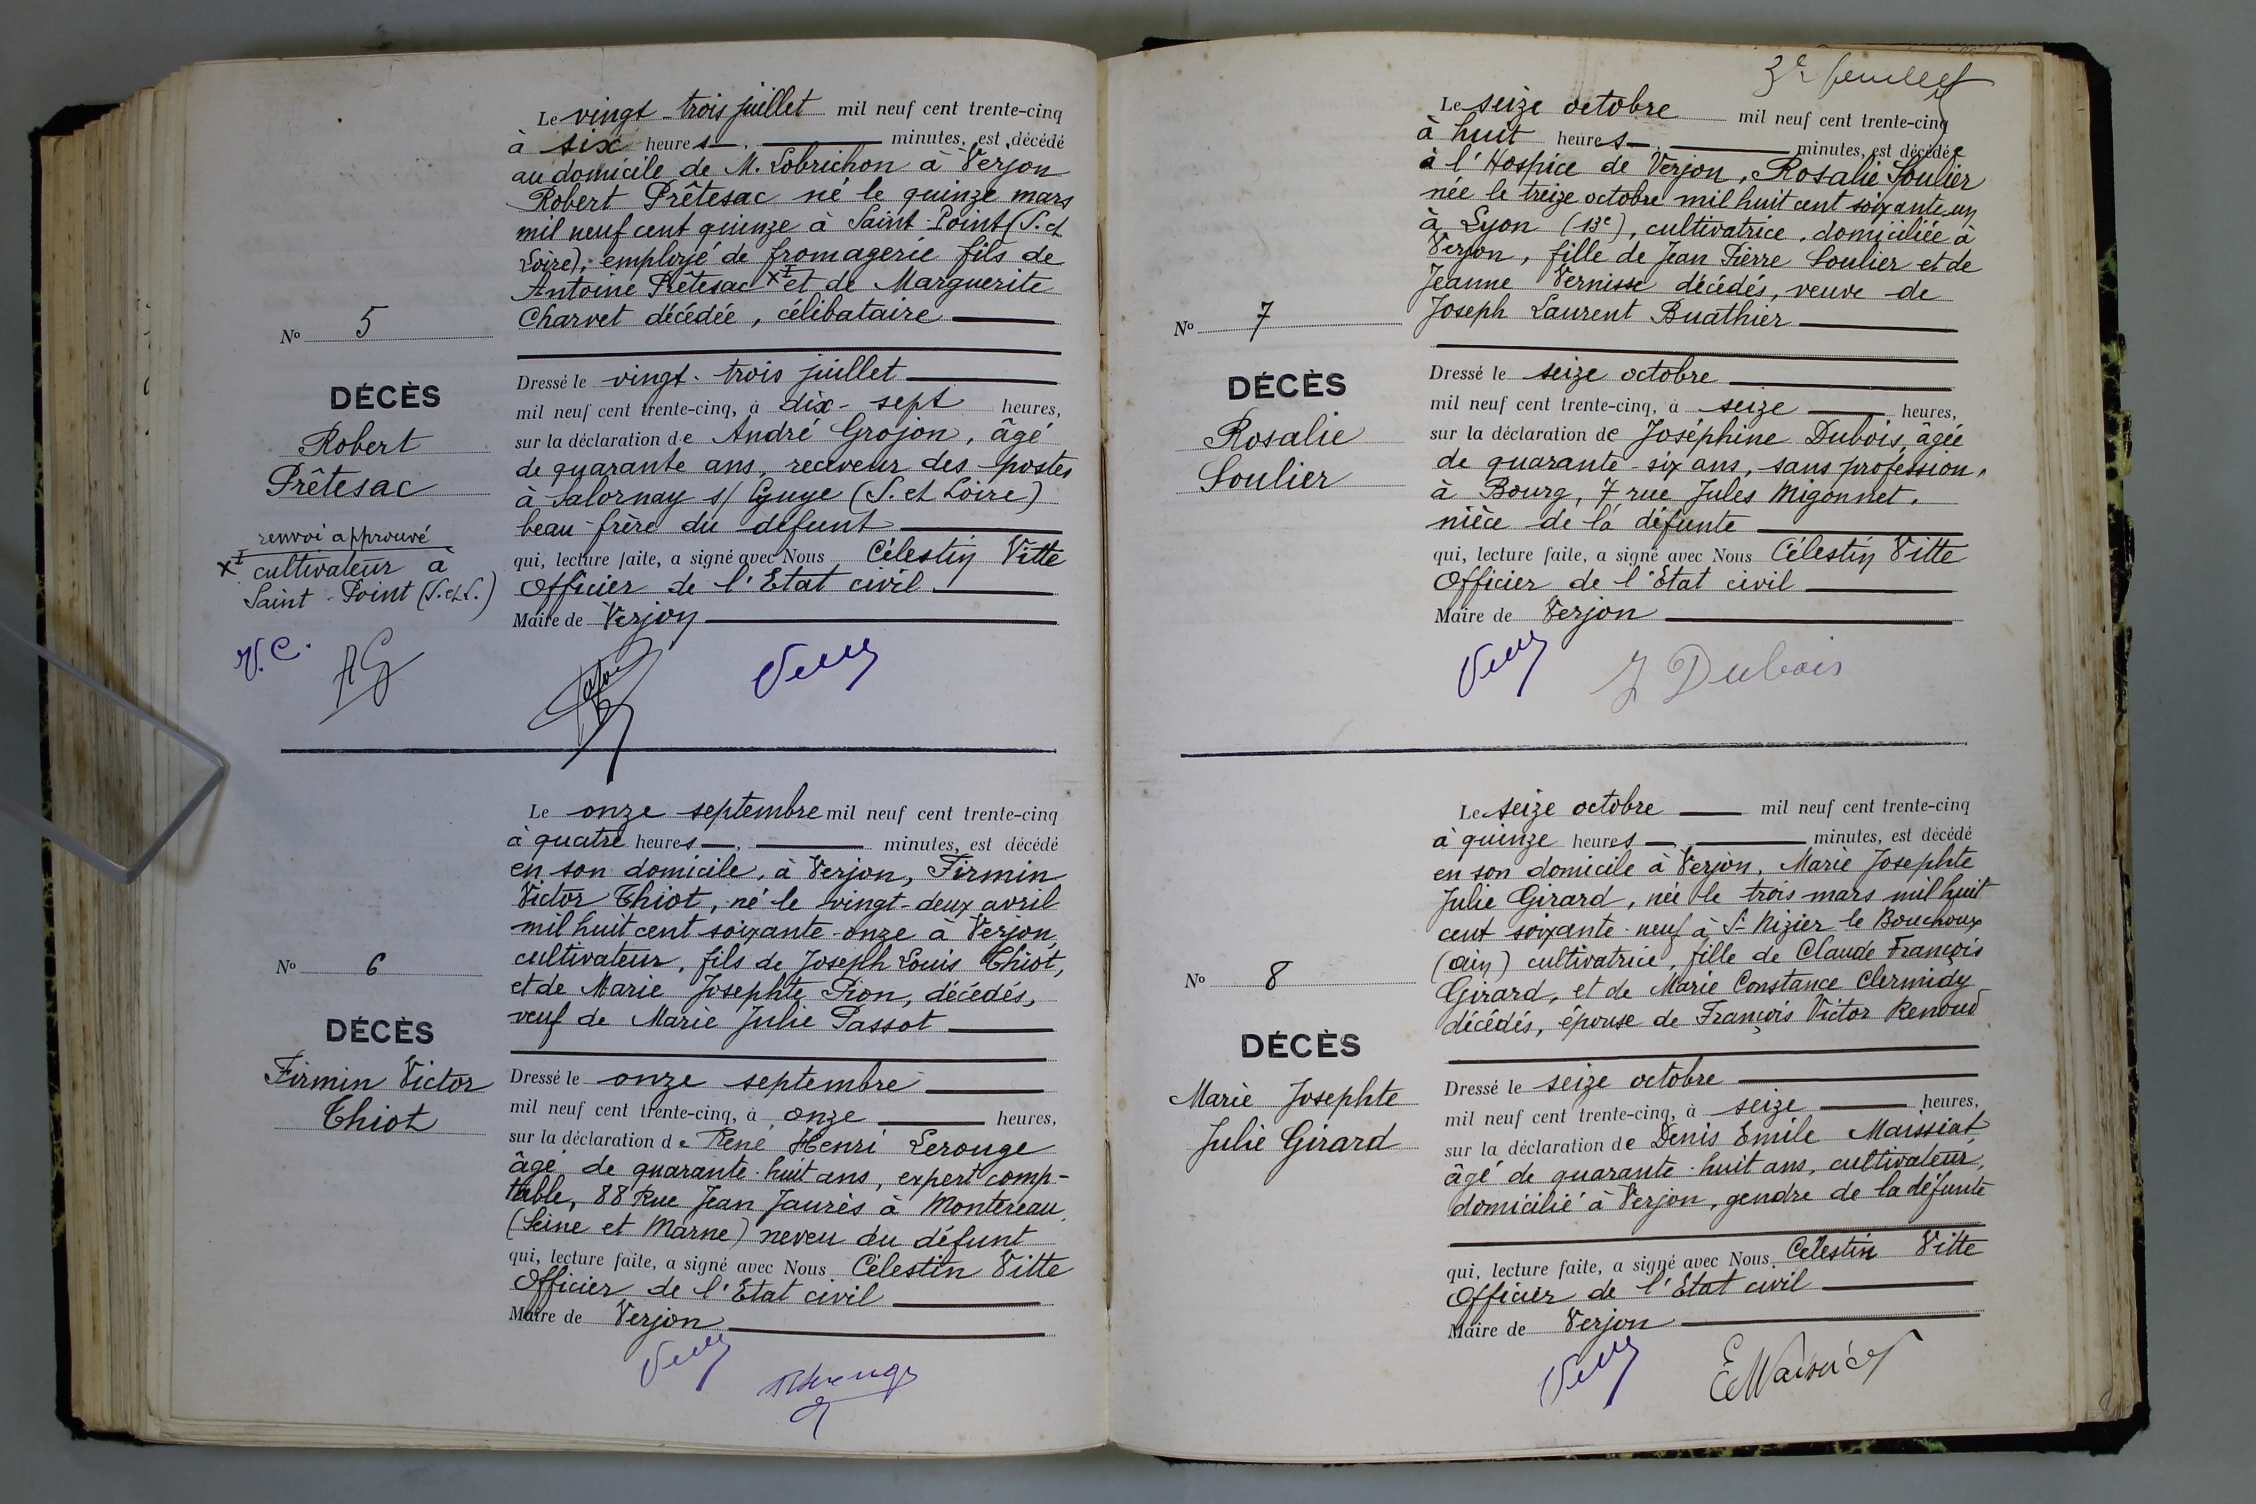 Le vingt-trois juillet mil neuf cent trente-cinq
à six heures, minutes, est décédé
au domicile de M. Lobrichon à Verjon
Robert Prêtesac né le quinze mars
mil neuf cent quinze à Saint-Point (S. et
Loire), employé de fromagerie fils de
Antoine Prêtesac x I et de Marguerite
Charvet décédée, célibataire
No 5
DÉCÈS
Robert
Prêtesac
renvoi approuvé
x I cultivateur à
Saint-Point (S. et L.)
V. C. AG
Dressé le vingt-trois juillet
mil neuf cent trente-cinq, à dix-sept heures,
sur la déclaration de André Grojon, âgé
de quarante ans, receveur des postes
à Salornay s/ Guye (S. et Loire)
beau-frère du défunt
qui, lecture faite, a signé avec Nous Célestin Vitte
Officier de l'Etat civil
Maire de Verjon
Le onze septembre mil neuf cent trente-cinq
à quatre heures, minutes, est décédé
en son domicile, à Verjon, Firmin
Victor Thiot, né le vingt-deux avril
mil huit cent soixante-onze à Verjon,
cultivateur, fils de Joseph Louis Thiot,
et de Marie Josephte Pion, décédés,
veuf de Marie Julie Passot
No 6
DÉCÈS
Firmin Victor
Thiot
Dressé le onze septembre
mil neuf cent trente-cinq, à onze heures,
sur la déclaration de René Henri Lerouge
âgé de quarante-huit ans, expert comp-
table, 88 Rue Jean Jaurès à Montereau
(Seine et Marne) neveu du défunt
qui, lecture faite, a signé avec Nous Célestin Vitte
Officier de l'Etat civil
Maire de Verjon
3e feuillet
Le seize octobre mil neuf cent trente-cinq
à huit heures, minutes, est décédée
à l'Hospice de Verjon, Rosalie Soulier
née le treize octobre mil huit cent soixante un
à Lyon (13e), cultivatrice, domiciliée à
Verjon, fille de Jean Pierre Soulier et de
Jeanne Vernisse décédés, veuve de
Joseph Laurent Buathier
No 7
DÉCÈS
Rosalie
Soulier
Dressé le seize octobre
mil neuf cent trente-cinq, à seize heures,
sur la déclaration de Joséphine Dubois, âgée
de quarante-six ans, sans profession,
à Bourg, 7 rue Jules Migonnet,
nièce de la défunte
qui, lecture faite, a signé avec Nous Célestin Vitte
Officier de l'Etat civil
Maire de Verjon
J Dubois
Le seize octobre mil neuf cent trente-cinq
à quinze heures, minutes, est décédé
en son domicile à Verjon, Marie Josephte
Julie Girard, née le trois mars mil huit
cent soixante-neuf à St Nizier le Bouchoux
(Ain) cultivatrice, fille de Claude François
Girard, et de Marie Constance Clermidy
décédés, épouse de François Victor Renoud
No 8
DÉCÈS
Marie Josephte
Julie Girard
Dressé le seize octobre
mil neuf cent trente-cinq, à seize heures,
sur la déclaration de Denis Emile Maissiat,
âgé de quarante-huit ans, cultivateur,
domicilié à Verjon, gendre de la défunte
qui, lecture faite, a signé avec Nous, Celestin Vitte
Officier de l'Etat civil
Maire de Verjon